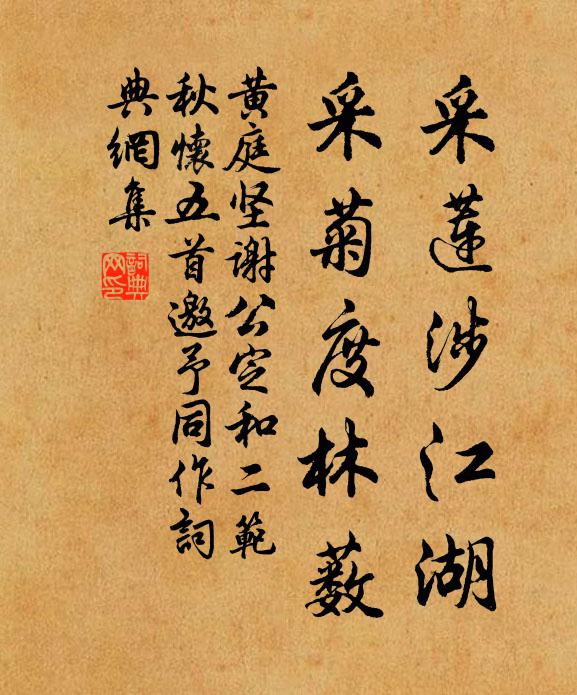 采蓮涉江湖
采菊度林薮
黄庭坚謝公定和二範
秋懷五首邀予同作詞
典網集
詞典網印